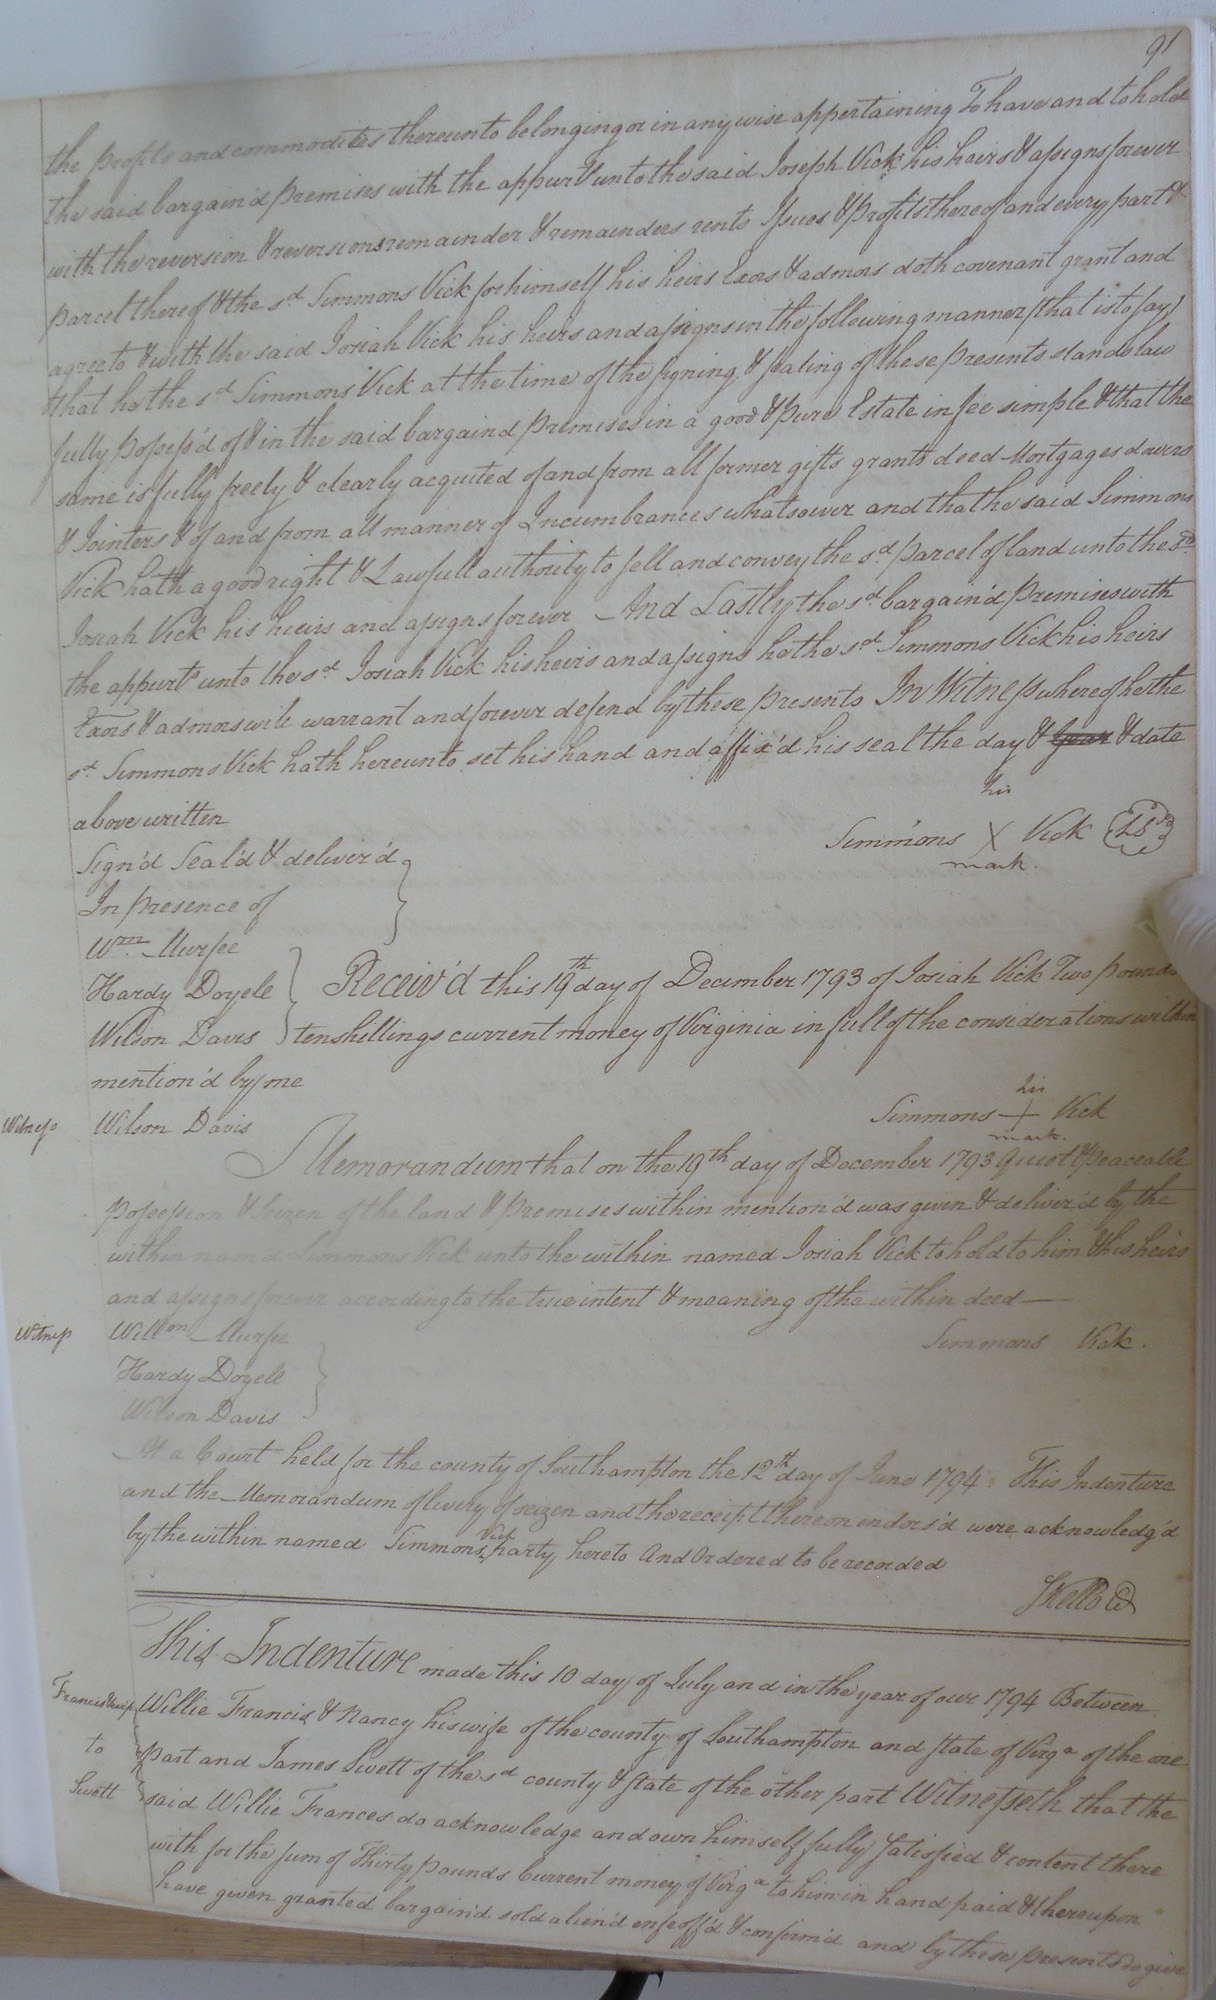 91
the profits and commodities thereunto belonging or in any wise appertaining To have and to hold
the said bargain'd premises with the appurts unto the said Joseph Vick his heirs & assigns forever
with the reversion & reversions remainder & remainders rents Issues & Profits thereof and every part &
parcel thereof & the sd Simmons Vick for himself his heirs Exors & admors doth covenant grant and
agree to & with the said Josiah Vick his heirs and assigns in the following manner (that is to say)
that he the sd Simmons Vick at the time of the signing & sealing of these presents stands law
fully possess'd of & in the said bargaind premises in a good & pure Estate in fee simple & that the
same is fully freely & clearly acquited of and from all former gifts grants deed Mortgages dowers
& Jointers & of and from all manner of Incumbrances whatsoever and that he said Simmons
Vick hath a good right & Lawfull authority to sell and convey the sd parcel of land unto the sd
Josiah Vick his heirs and assigns forever And Lastly the sd bargain'd premises with
the appurts unto the sd Josiah Vick his heirs and assigns he the sd Simmons Vick his heirs
Exors & admors will warrant and forever defend by these presents In Witness whereof he the
sd Simmons Vick hath hereunto set his hand and affix'd his seal the day & year & date
above written
his
Simmons X Vick LS
mark.
Sign'd Seal'd & deliver'd
In presence of
Wm Murfee
Hardy Doyele
Wilson Davis
Receiv'd this 19th day of December 1793 of Josiah Vick Two pounds
ten shillings current money of Virginia in full of the considerations within
mention'd by me
his
Simmons + Vick
mark.
Witness Wilson Davis
Memorandum that on the 19th day of December 1793 Quiet & Peaceable
possession & Seizen of the land & premises within mention'd was given & deliver'd by the
within nam'd Simmons Vick unto the within named Josiah Vick to hold to him & his heirs
and assigns forever according to the true intent & meaning of the within deed
Witness Willm Murfee
Simmons Vick.
Hardy Doyell
Wilson Davis
At a Court held for the county of Southampton the 12th day of June 1794 This Indenture
and the Memorandum of livery of seizen and the receipt thereon endors'd were acknowledg'd
by the within named Simmons Vick party hereto And Ordered to be recorded
This Indenture made this 10 day of July and in the year of our 1794 Between
Francis & wife
to
Swett
Willie Francis & Nancy his wife of the county of Southampton and state of Virga of the one
part and James Swett of the sd county & state of the other part Witnesseth that the
said Willie Frances do acknowledge and own himself fully satisfied & content there
with for the sum of Thirty pounds Current money of Virga to him in hand paid & thereupon
have given granted bargain'd sold alien'd enfeoff'd & confirm'd and by these presents do give